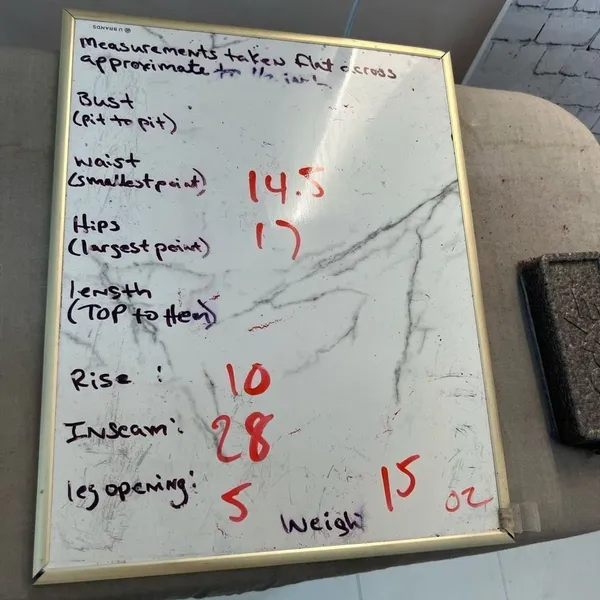 U BRANDS
measurements taken flat across
approximate to
Bust
(pit to pit)
waist
(smallest point) 14.5
Hips
(largest point) 17
length
(TOP to Hem)
Rise : 10
Inseam: 28
leg opening: 5
Weight 15 oz